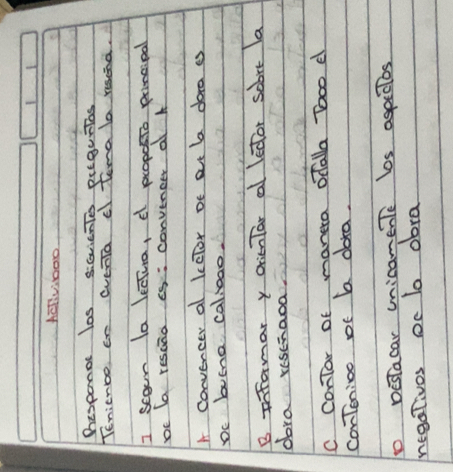 Actividad
Responde las siguientes preguntas
Teniendo en cuenta el Tema la reseña.
1 Segun la lectura, el proposito principal
de la reseña es: convencer al A
A Convencer al lector de que la obra es
de buena calidad.
B Informar y orientar al lector sobre la
obra reseñada.
C Contar de manera detalla Todo el
contenido de la obra.
D Destacar unicamente los aspectos
negativos de la obra